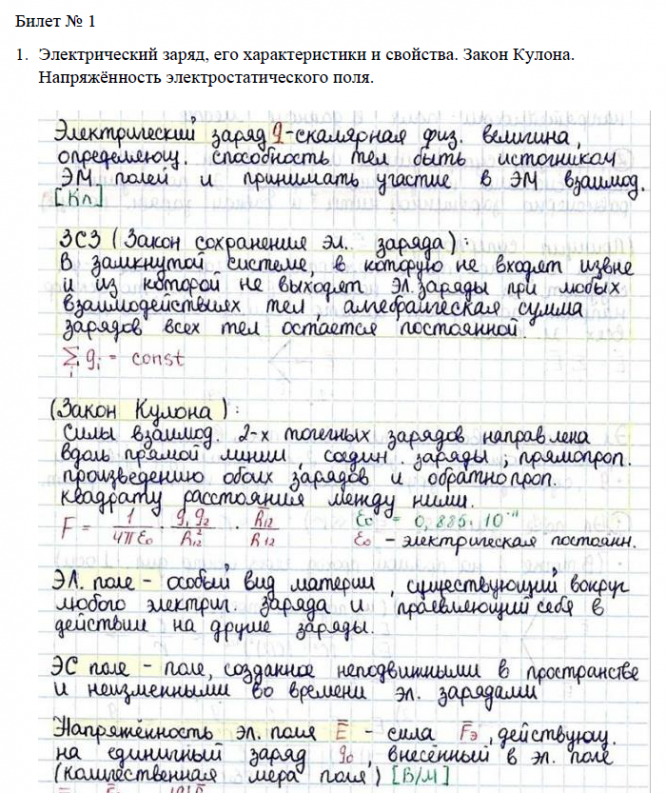 Билет № 1
1. Электрический заряд, его характеристики и свойства. Закон Кулона.
Напряжённость электростатического поля.
Электрический заряд q-скалярная физ. величина,
определяющ. способность тел быть источникам
ЭМ. полей и принимать участие в ЭМ взаимод.
[Кл]
ЗСЗ (Закон сохранения эл.. заряда):
В замкнутой системе, в которую не входят извне
и из которой не выходят эл. заряды при любых
взаимодействиях тел, алгебраическая сумма
зарядов всех тел остается постоянной.
∑i qi = const
(Закон Кулона):
Силы взаимод. 2-х точечных зарядов направлена
вдоль прямой линии, соедин. заряды, прямопроп.
произведению обоих зарядов и обратнопроп.
квадрату расстояния между ними.
F = 1/4πε0 · q1 q2/R12² · R̄12/R12 ε0 = 0,885·10⁻¹¹
ε0 - электрическая постоянн.
ЭЛ. поле - особый вид материи, существующий вокруг
любого электрич. заряда и проявляющий себя в
действии на другие заряды.
ЭС поле - поле, созданное неподвижными в пространстве
и неизменными во времени эл. зарядами
Напряжённость эл. поля Ē - сила F̄э, действующ.
на единичный заряд q0, внесённый в эл. поле
(количественная мера поля) [В/м]